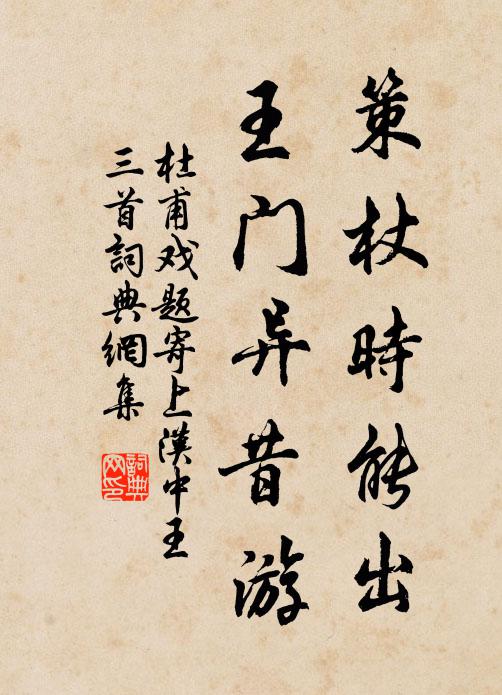 策杖時能出
王门异昔游
杜甫戏题寄上漢中王
三首詞典網集
詞典
网印